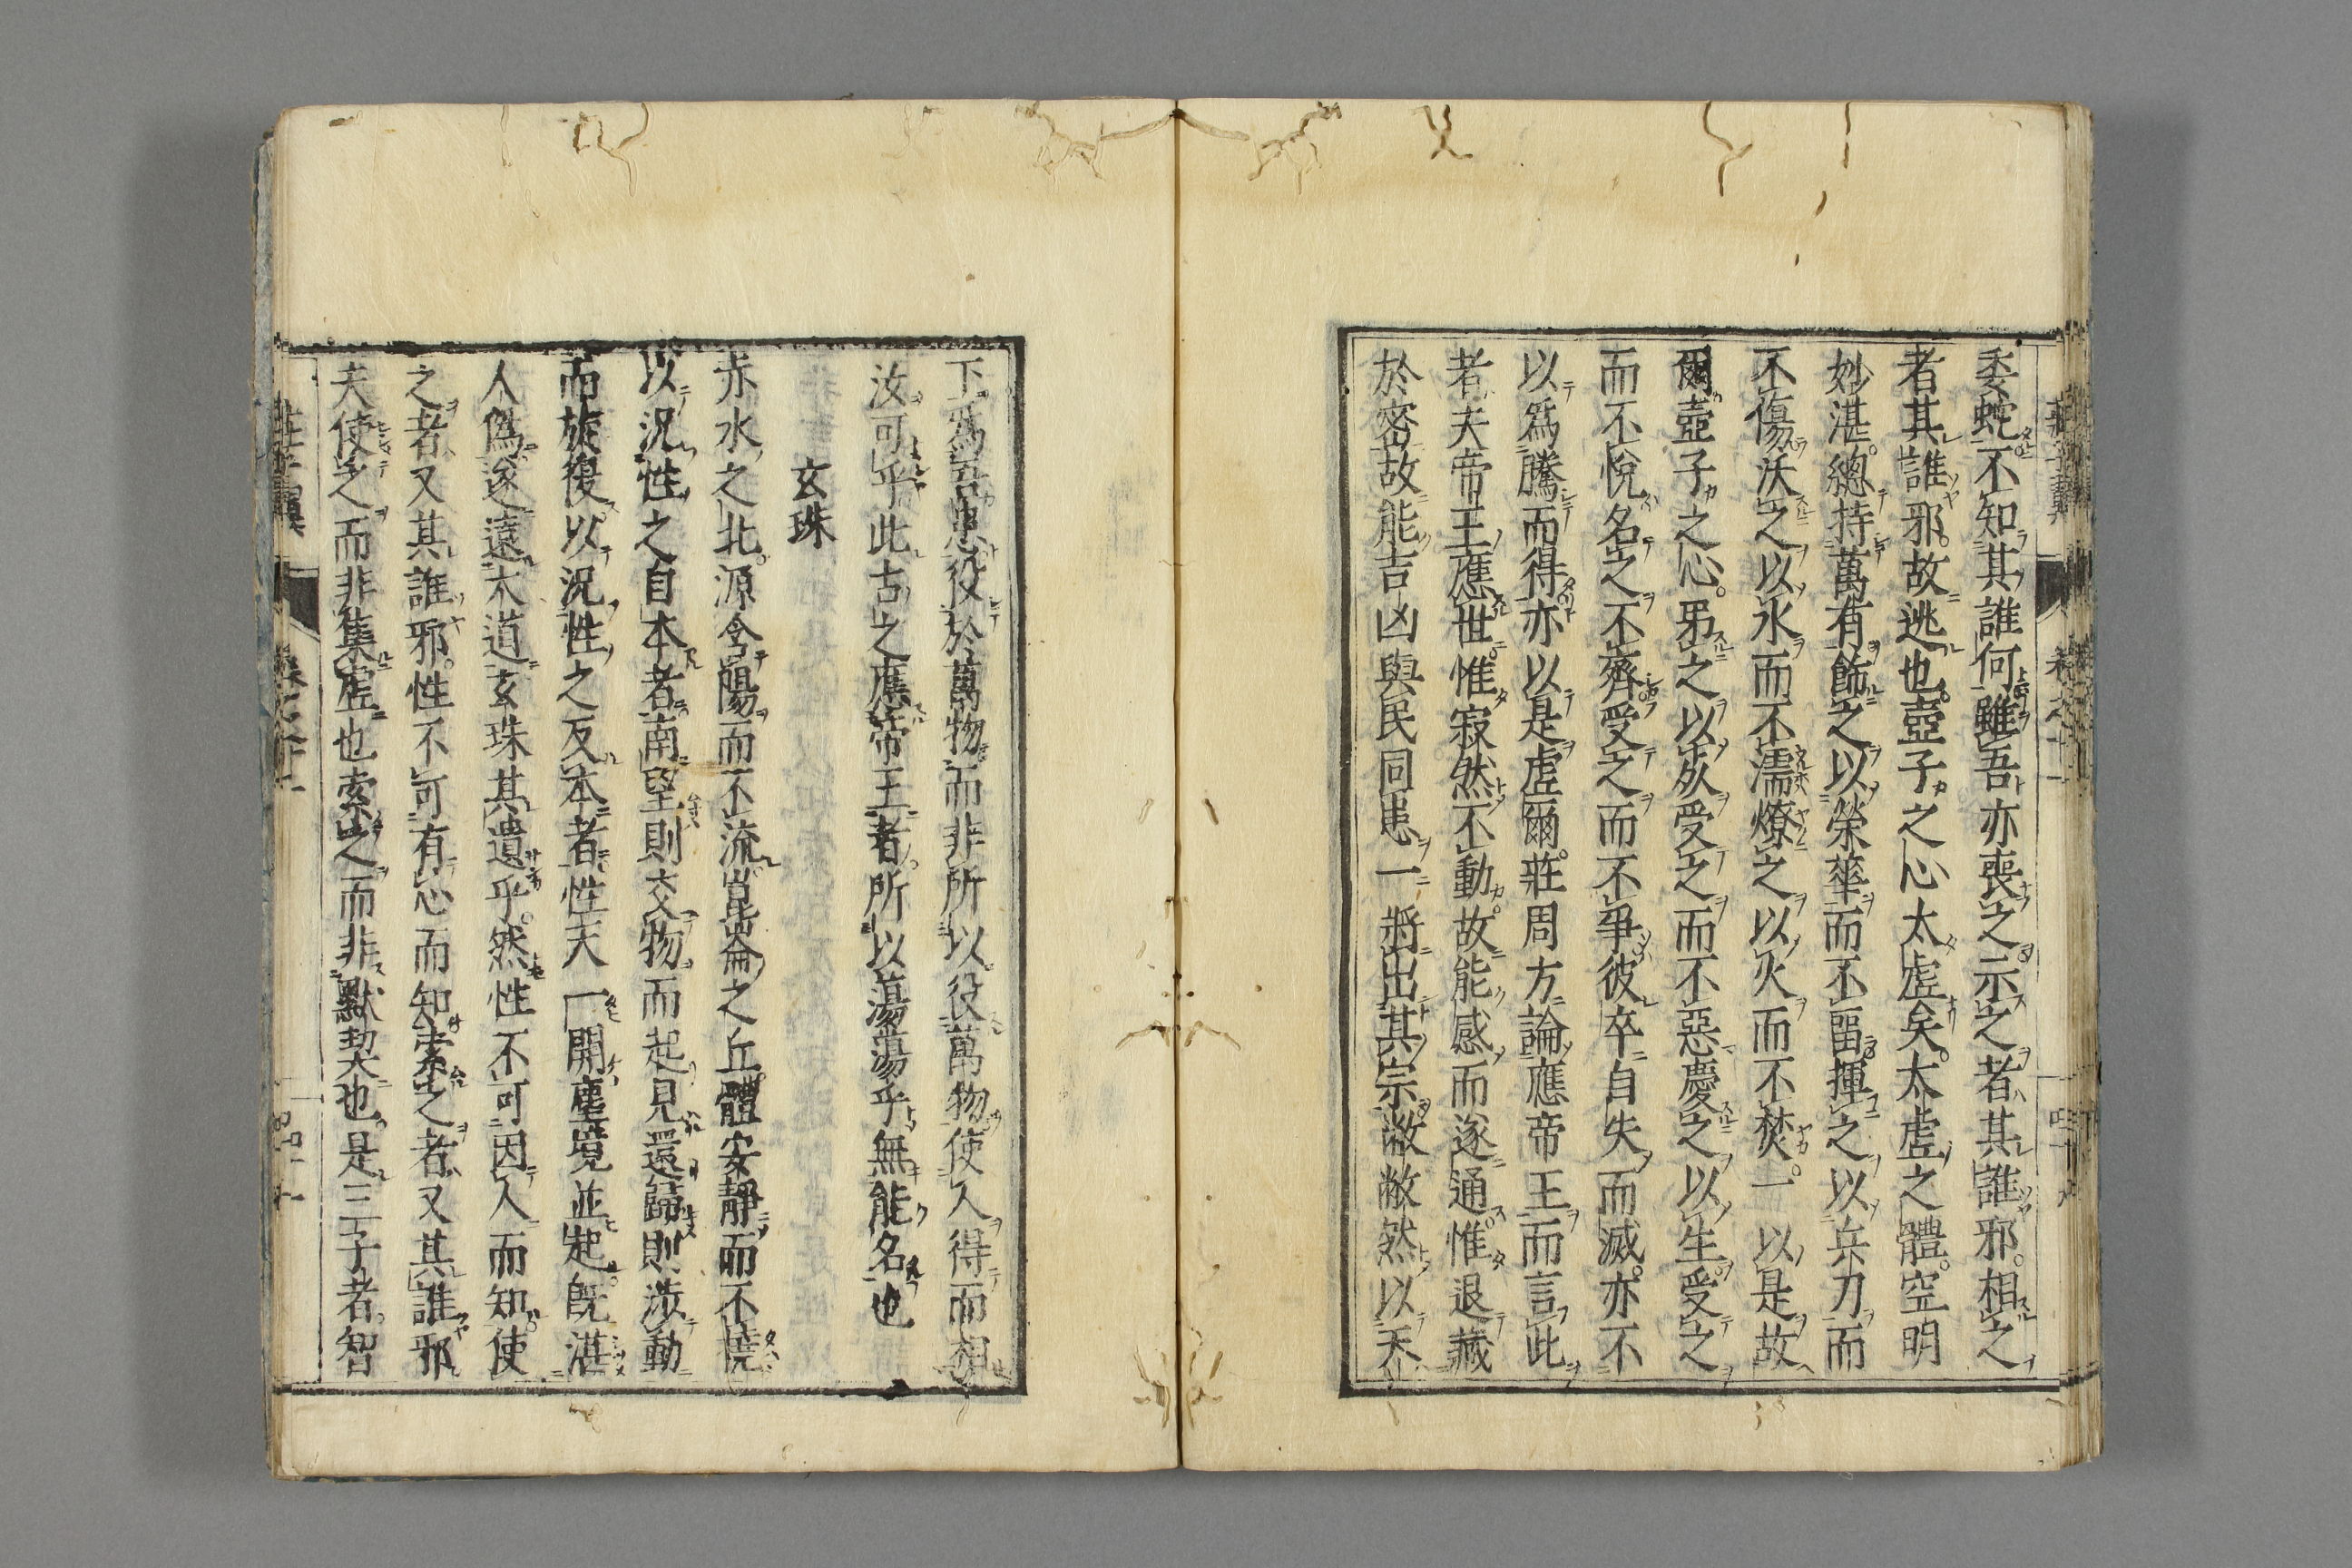 委蛇不知其誰何雖吾亦喪之示之者其誰邪相之
者其誰邪故逃也壺子之心太虛矣太虛之體空明
妙湛總持萬有飾之以榮華而不留揮之以兵刀而
不傷沃之以水而不濡燎之以火而不焚一以是故
爾壺子之心弔之以死受之而不惡慶之以生受之
而不悅名之不齊受之而不爭彼卒自失而滅亦不
以爲騰而得亦以是虛爾莊周方論應帝王而言此
者夫帝王應世惟寂然不動故能感而遂通惟退藏
於密故能吉凶與民同患一將出其宗敝敝然以天
下爲吾患役於萬物而非所以役萬物使人得而相
汝可乎此古之應帝王者所以蕩蕩乎無能名也
玄珠
赤水之北源含陽而不流崑崙之丘體安靜而不撓
以況性之自本者南望則交物而起見還歸則涉動
而旋復以況性之反本者性天一開塵境並起既湛
人僞遂遠大道玄珠其遺乎然性不可因人而知使
之者又其誰邪性不可有心而知索之者又其誰邪
夫使之而非集虛也索之而非默契也是三子者智